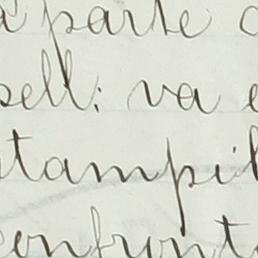 a parte
sell: va
stampil
confront